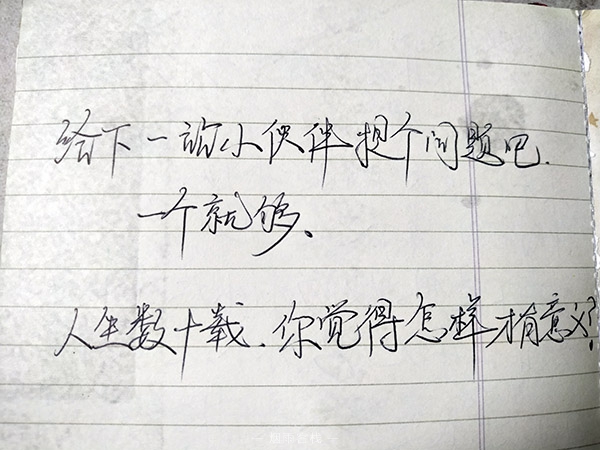 给下一站小伙伴提个问题吧.
一个就够。
人生数十载.你觉得怎样才有意义?